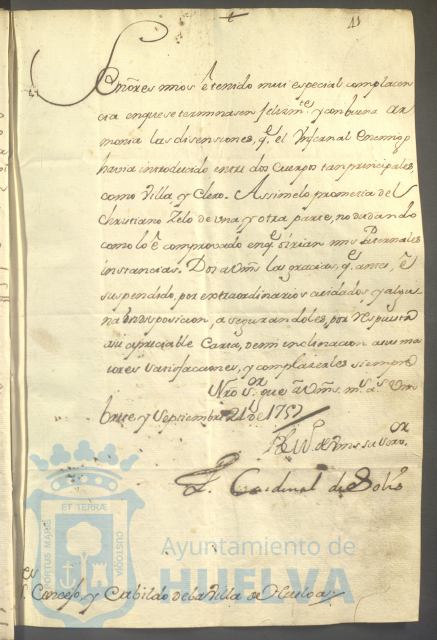 11
Señores mios é tenido mui especial complacen
cia en que se terminasen felizm.te y con buena ar
monia las disensiones, q.e el Infernal Enemigo
havia introducido entre dos Cuerpos tan principales,
como Villa y Clero. Assi me lo prometia del
Christiano Zelo de una y otra parte, no dudando
como lo é comprovado en q.e oirian mis Paternales
instancias. Doi a Vms las gracias, q.e antes é
suspendido, por extraordinarios cuidados y algu
na indisposicion, asegurandoles, por respuesta
a su apreciable Carta, de mi inclinacion a sus ma
iores satisfacciones, y complazerles siempre.
Nro S.or gue a Vms m.s a.s Um
brete y Septiembre 21 de 1757
BLM. de Vms su serv.or
F. Cardinal de Solis
S.res Concejo y Cabildo de la Villa de Huelva
PORTUS MARIS ET TERRÆ CUSTODIA
Ayuntamiento de
HUELVA